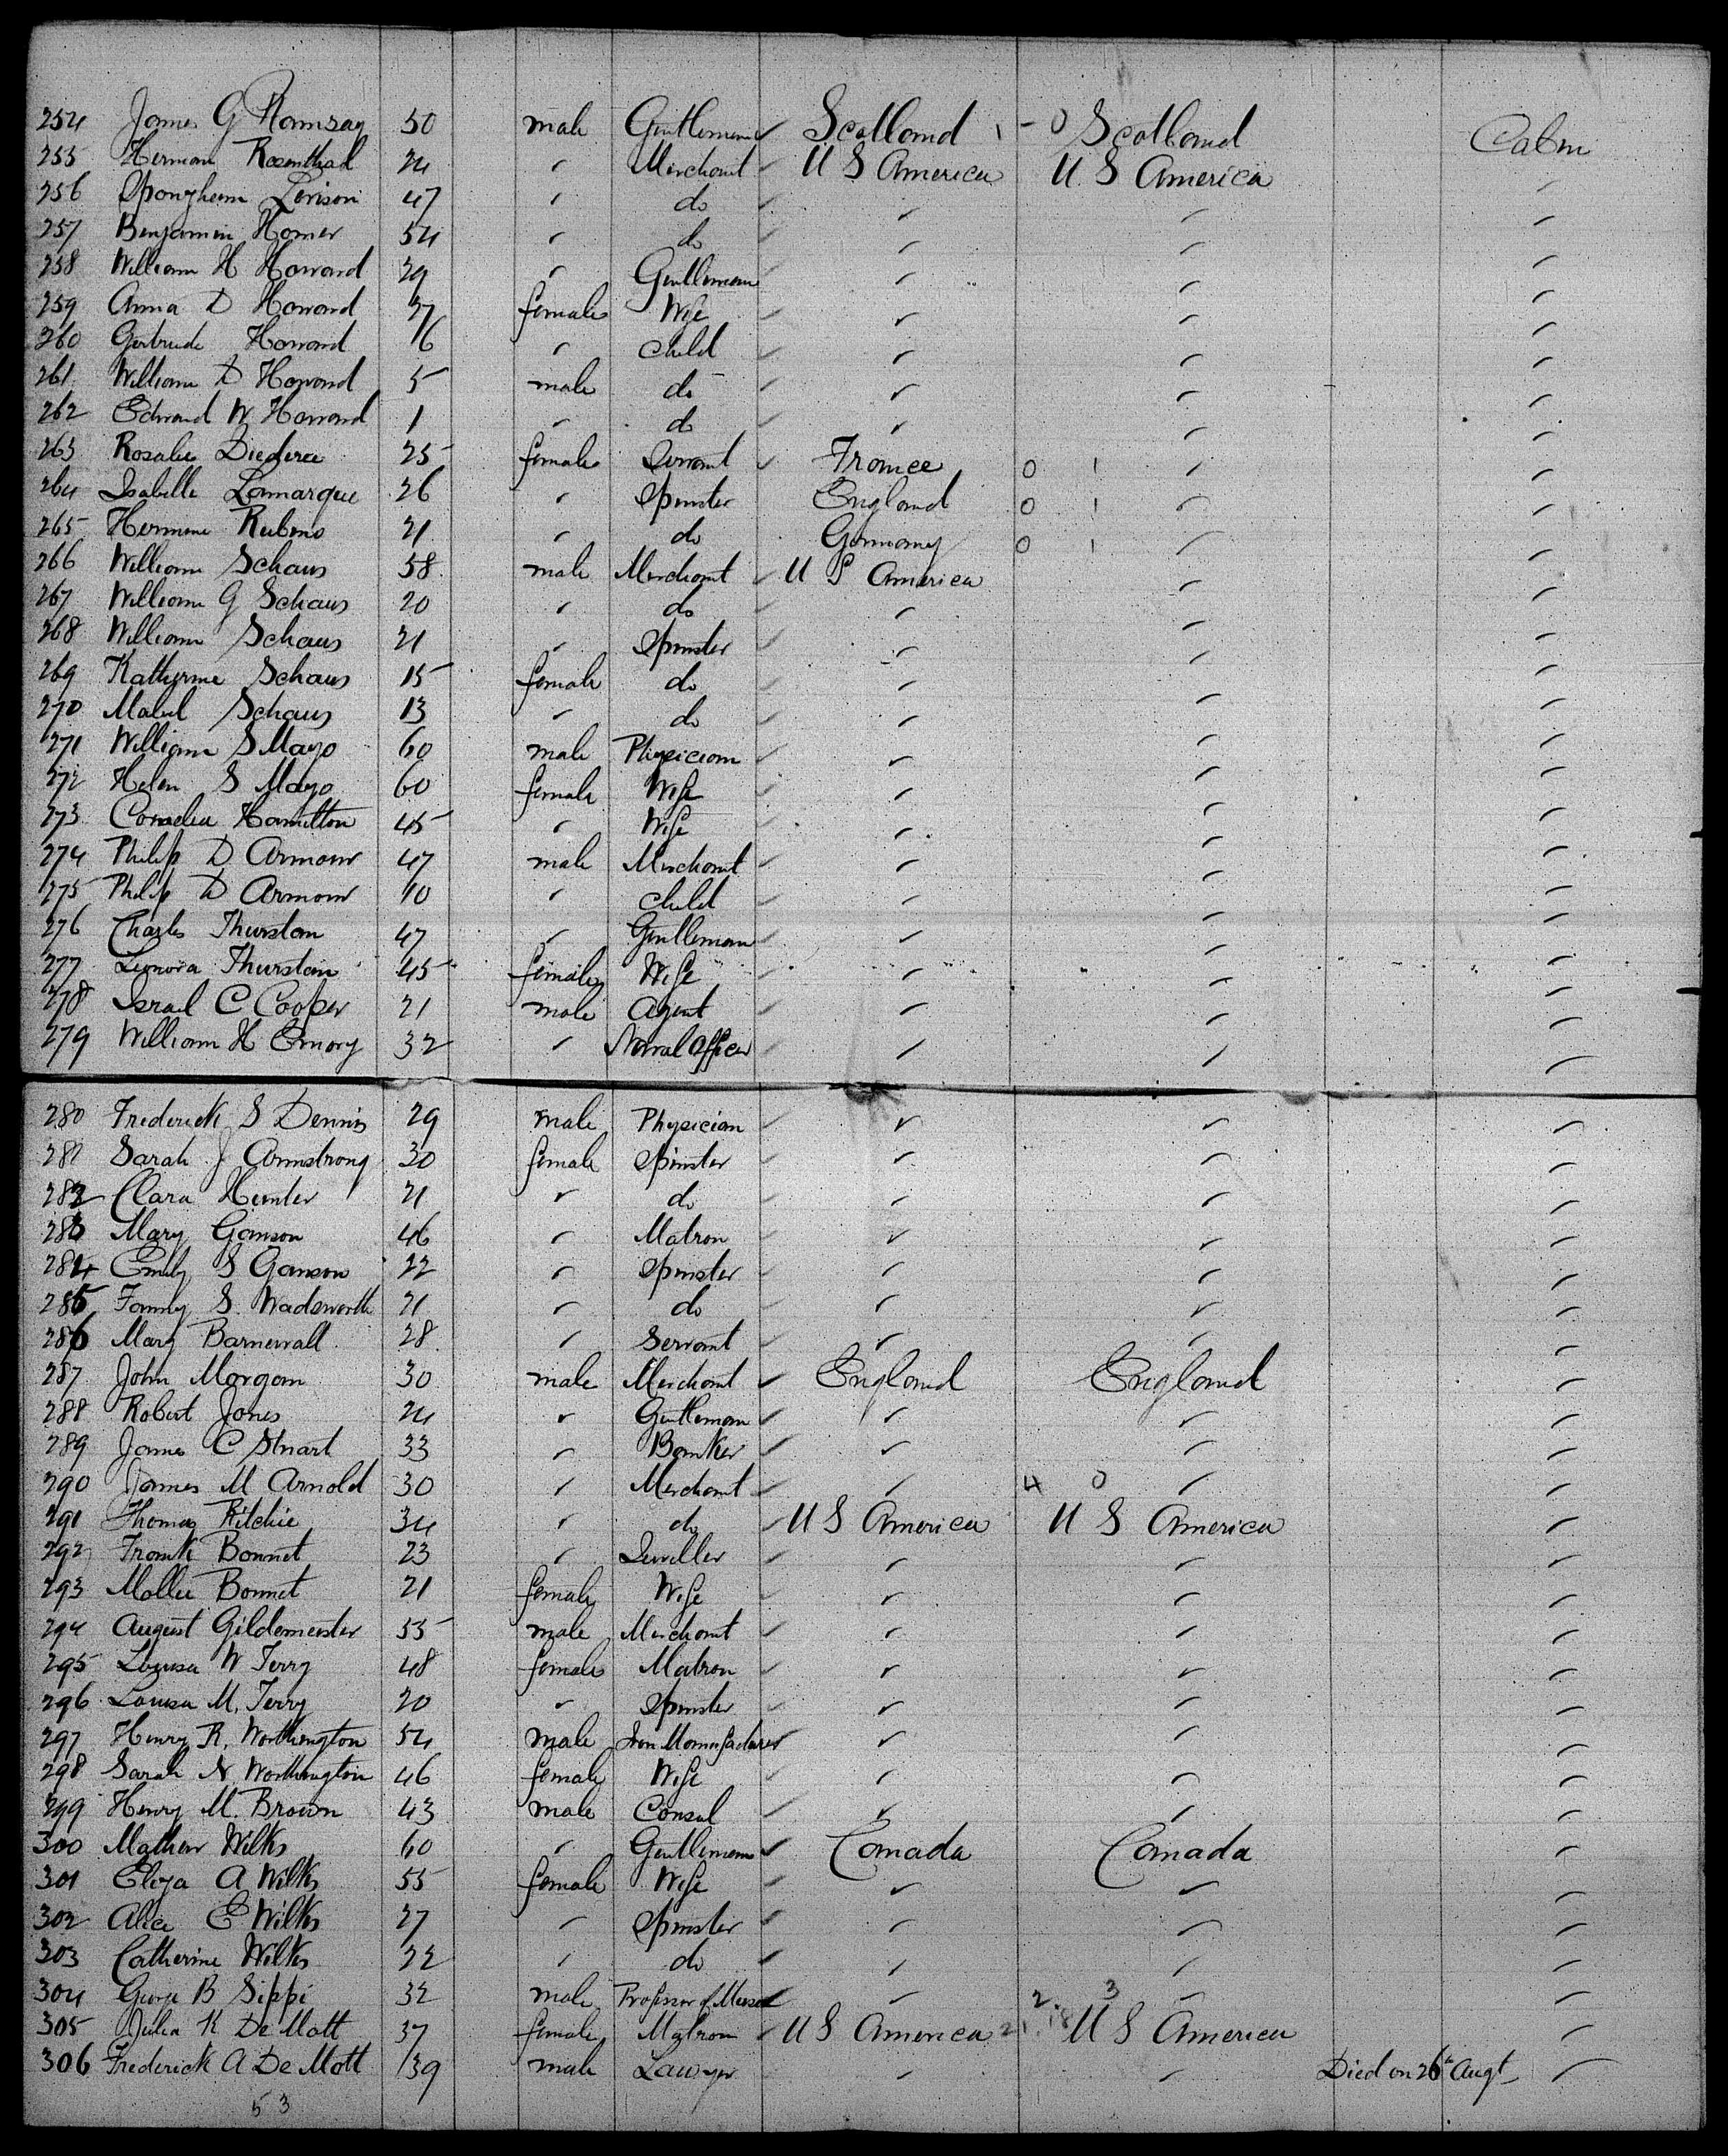 254 James G Ramsay 50 male Gentleman Scotland 1 - 0 Scotland Cabin
255 Herman Rosenthal 24 " Merchant U S America U. S America "
256 Levison 47 " do " " "
257 Benjamin Homer 54 " do " " "
258 William H Howard 29 " Gentleman " " "
259 Anna D Howard 27 female Wife " " "
260 Gertrude Howard 6 " child " " "
261 William D Howard 5 male do " " "
262 Edward W Howard 1 " do " " "
263 Rosalie 25 female Servant France 0 1 " "
264 Isabelle Lamarque 26 " Spinster England 0 1 " "
265 Hermine Rubens 21 " do Germany 0 1 " "
266 William Schaus 58 male Merchant U S America " "
267 William G Schaus 20 " do " " "
268 William Schaus 21 " Spinster " " "
269 Katherine Schaus 15 female do " " "
270 Mabel Schaus 13 " do " " "
271 William S Mayo 60 male Physician " " "
272 Helen S Mayo 60 female Wife " " "
273 Hamilton 45 " Wife " " "
274 Philip D Armour 47 male Merchant " " "
275 Philip D Armour 10 " child " " "
276 Charles Thurston 47 " Gentleman " " "
277 Leonora Thurston 45 female Wife " " "
278 Israel C Cooper 21 male Agent " " "
279 William H Emory 32 " Naval Officer " " "
280 Frederick S Dennis 29 male Physician " " "
281 Sarah J Armstrong 30 female Spinster " " "
282 Clara Hunter 21 " do " " "
283 Mary Ganson 46 " Matron " " "
284 Emily S Ganson 22 " Spinster " " "
285 Fanny S. Wadsworth 21 " do " " "
286 Mary Barnewall 28 " Servant " " "
287 John Morgan 30 male Merchant England England "
288 Robert Jones 24 " Gentleman " " "
289 James C Stuart 33 " Banker " " "
290 James M Arnold 30 " Merchant " 4 0 " "
291 Thomas Ritchie 34 " do U S America U S America "
292 Frank Bonnet 23 " Jeweller " " "
293 Mollie Bonnet 21 female Wife " " "
294 August Gildemeister 55 male Merchant " " "
295 Louisa W Terry 48 female Matron " " "
296 Louisa M. Terry 20 " Spinster " " "
297 Henry R. Worthington 54 male Iron Manufacturer " " "
298 Sarah N Worthington 46 female Wife " " "
299 Henry M. Brown 43 male Consul " " "
300 Mathew Wilks 60 " Gentleman Canada Canada "
301 Eliza A Wilks 55 female Wife " " "
302 Alice E Wilks 27 " Spinster " " "
303 Catherine Wilks 22 " do " " "
304 George B Sippi 32 male Professor of Music " 2. 3 " "
305 Julia K De Mott 37 female Matron U S America 21. 18 U S America "
306 Frederick A De Mott 39 male Lawyer " " Died on 26th Augt "
53